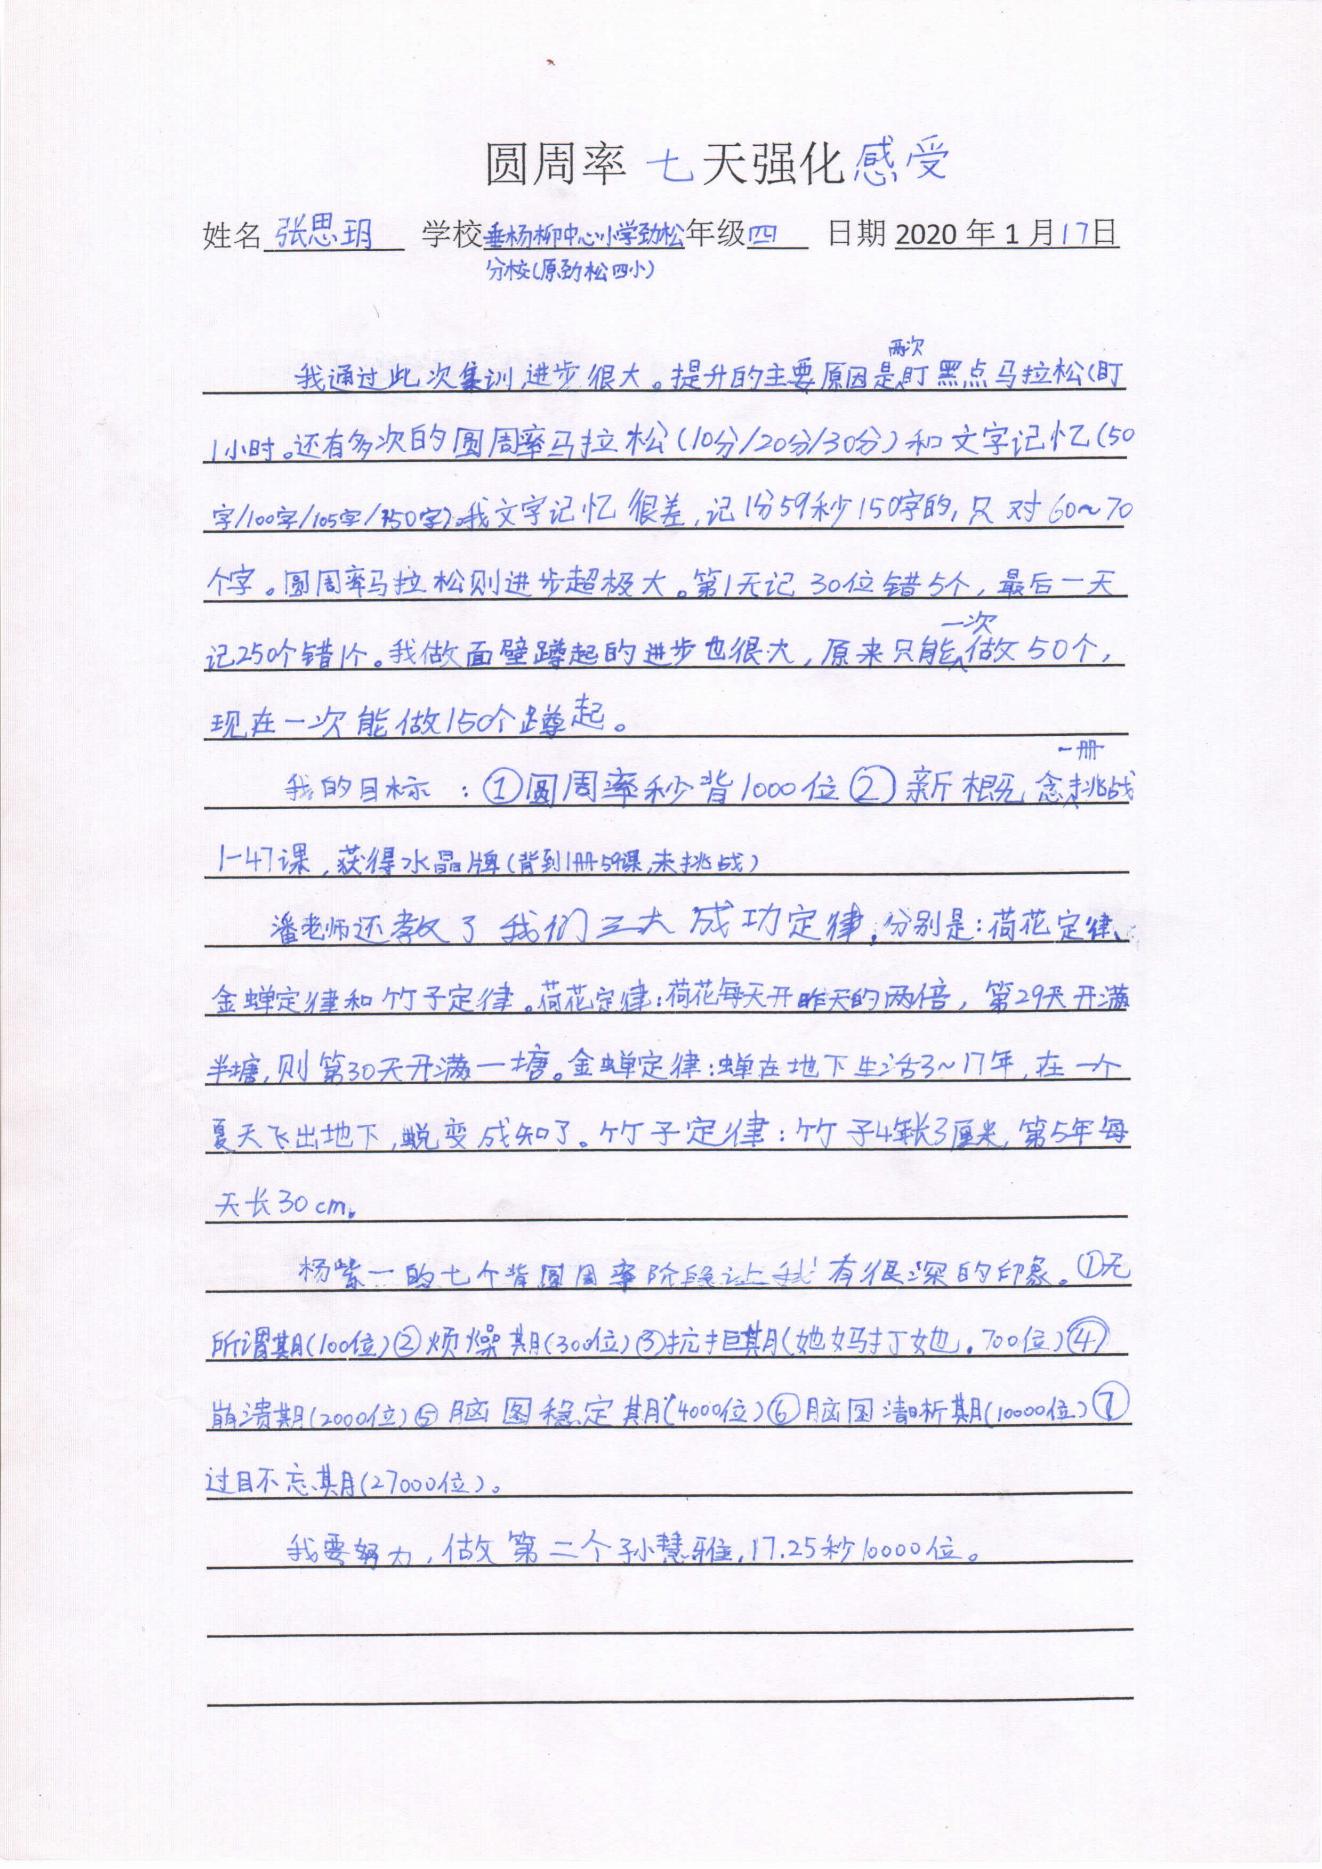 圆周率 七天强化感受
姓名 张思玥 学校 垂杨柳中心小学劲松 年级 四 日期 2020 年 1 月 17日
分校(原劲松四小)
两次
我通过此次集训,进步很大。提升的主要原因是盯黑点马拉松(盯
1小时。还有多次的圆周率马拉松(10分/20分/30分)和文字记忆(50
字/100字/105字/150字)。我文字记忆很差,记1分59秒150字的,只对60~70
个字。圆周率马拉松则进步超极大。第1天记30位错5个,最后一天
一次
记250个错1个。我做面壁蹲起的进步也很大,原来只能做50个,
现在一次能做150个蹲起。
一册
我的目标:①圆周率秒背1000位②新概念挑战
1-47课,获得水晶牌(背到1册59课,未挑战)
潘老师还教了我们三大成功定律,分别是:荷花定律、
金蝉定律和竹子定律。荷花定律:荷花每天开昨天的两倍,第29天开满
半塘,则第30天开满一塘。金蝉定律:蝉在地下生活3~17年,在一个
夏天飞出地下,蜕变成知了。竹子定律:竹子4年长3厘米,第5年每
天长30cm。
杨紫一的七个背圆周率阶段让我有很深的印象。①无
所谓期(100位)②烦燥期(300位)③抗拒期(她妈打她。700位)④
崩溃期(2000位)⑤脑图稳定期(4000位)⑥脑图清晰期(10000位)⑦
过目不忘期(27000位)。
我要努力,做第二个孙慧雅,17.25秒10000位。